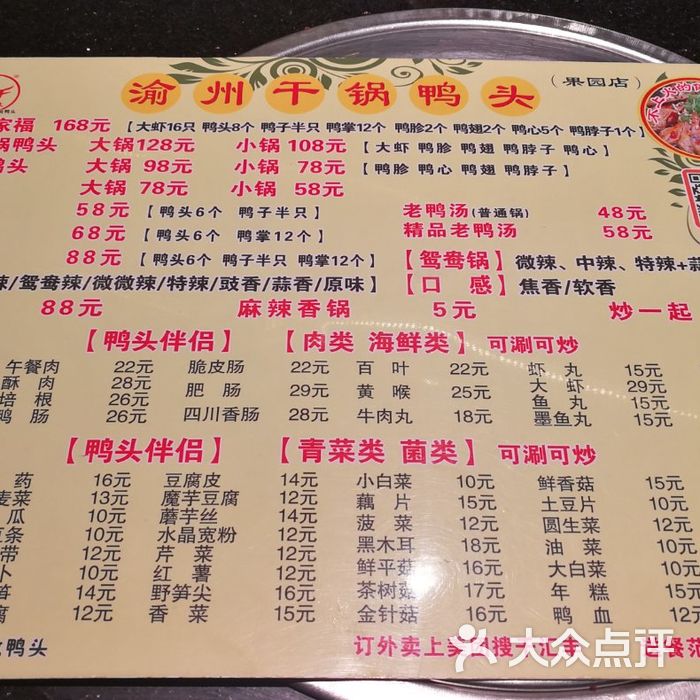 渝州干锅鸭头（果园店）
不上火的
家福 168元 【大虾16只 鸭头8个 鸭子半只 鸭掌12个 鸭胗2个 鸭翅2个 鸭心5个 鸭脖子1个】
锅鸭头 大锅128元 小锅108元 【大虾 鸭胗 鸭翅 鸭脖子 鸭心】
鸭头 大锅 98元 小锅 78元 【鸭胗 鸭心 鸭翅 鸭脖子】
大锅 78元 小锅 58元
58元 【鸭头6个 鸭子半只】 老鸭汤(普通锅) 48元
68元 【鸭头6个 鸭掌12个】 精品老鸭汤 58元
88元 【鸭头6个 鸭子半只 鸭掌12个】 【鸳鸯锅】 微辣、中辣、特辣+蒜
辣/鸳鸯辣/微微辣/特辣/豉香/蒜香/原味】 【口感】 焦香/软香
88元 麻辣香锅 5元 炒一起
【鸭头伴侣】 【肉类 海鲜类】 可涮可炒
午餐肉 22元 脆皮肠 22元 百叶 22元 虾丸 15元
酥肉 28元 肥肠 29元 黄喉 25元 大虾 29元
培根 26元 四川香肠 28元 牛肉丸 18元 鱼丸 15元
鸭肠 26元 墨鱼丸 15元
【鸭头伴侣】 【青菜类 菌类】 可涮可炒
药 16元 豆腐皮 14元 小白菜 10元 鲜香菇 15元
麦菜 13元 魔芋豆腐 12元 藕片 15元 土豆片 10元
瓜 10元 磨芋丝 14元 菠菜 12元 圆生菜 12元
条 10元 水晶宽粉 12元 黑木耳 18元 油菜 10元
带 12元 芹菜 12元 鲜平菇 16元 大白菜 10元
卜 10元 红薯 12元 茶树菇 17元 年糕 15元
笋 14元 野笋尖 16元 金针菇 16元 鸭血 12元
腐 12元 香菜 15元
鸭头 订外卖上美 搜 大汇
大众点评